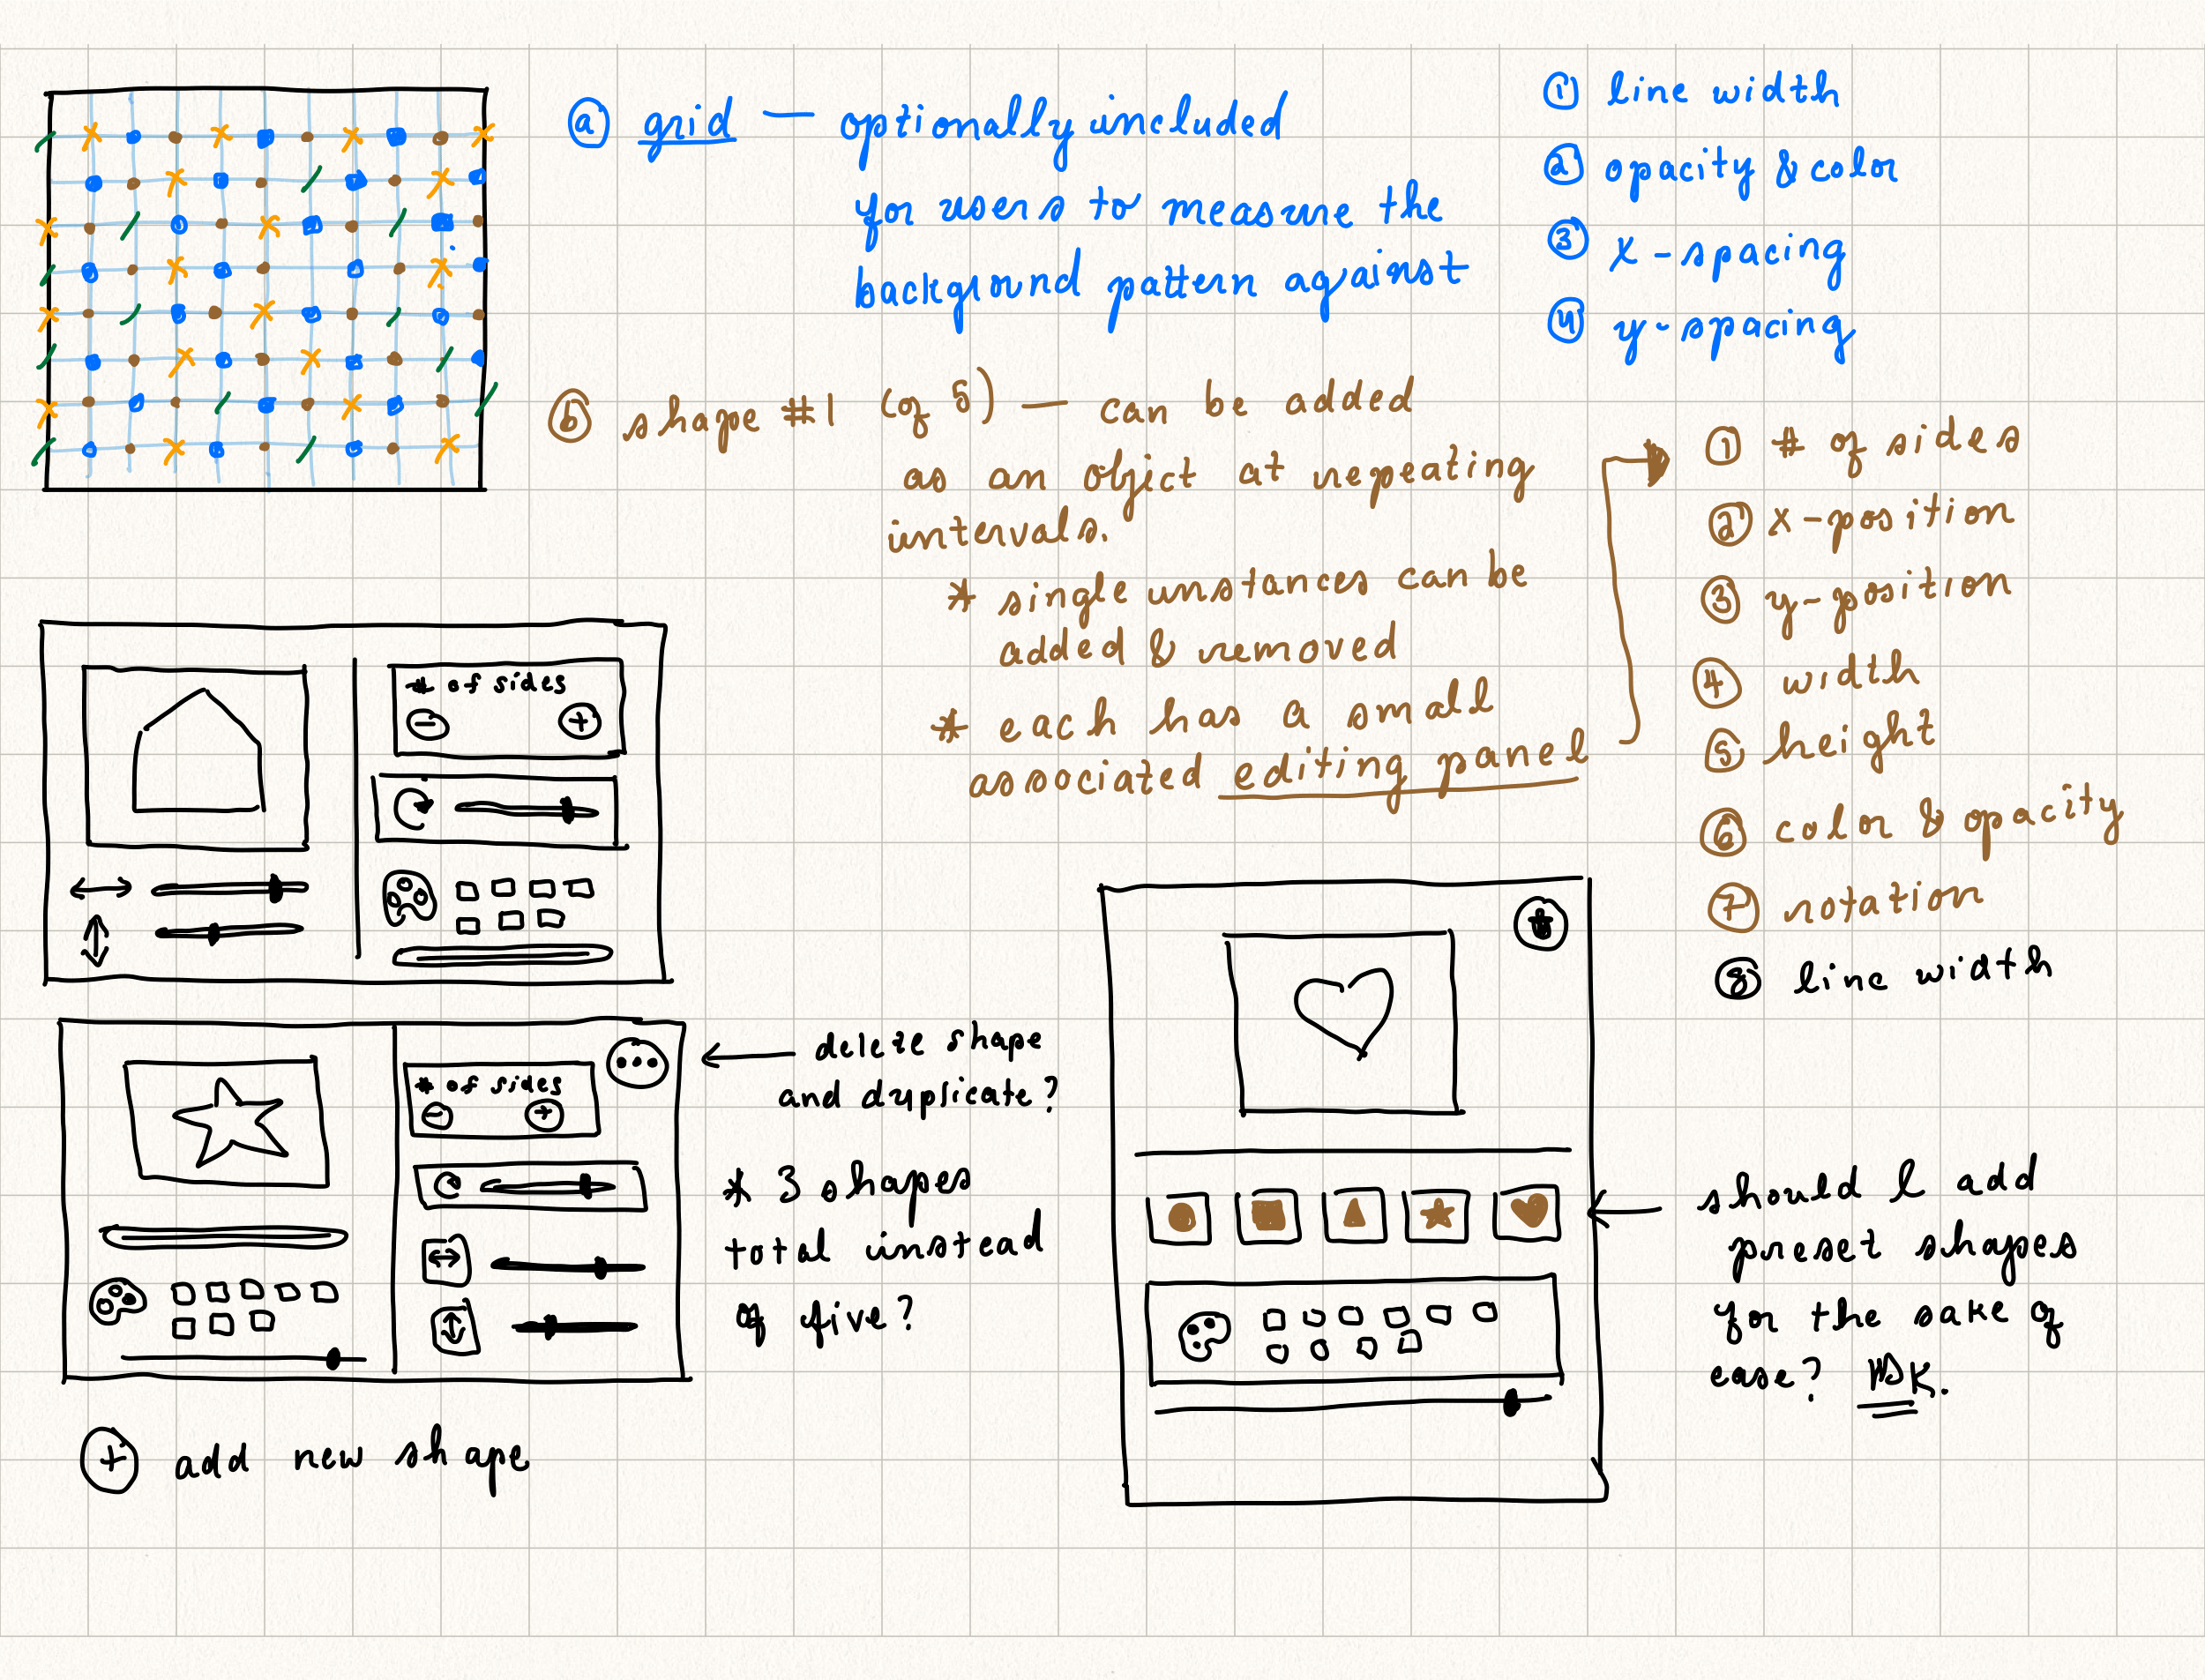 ⓐ grid — optionally included
for users to measure the
background pattern against
① line width
② opacity & color
③ x-spacing
④ y-spacing
ⓑ shape #1 (of 5) — can be added
as an object at repeating
intervals.
* single instances can be
added & removed
* each has a small
associated editing panel
① # of sides
② x-position
③ y-position
④ width
⑤ height
⑥ color & opacity
⑦ rotation
⑧ line width
# of sides
− +
# of sides
− +
...
← delete shape
and duplicate?
* 3 shapes
total instead
of five?
+ add new shape
should I add
preset shapes
for the sake of
ease? IDK.